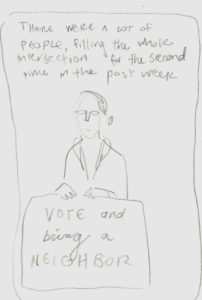 THERE WERE A LOT OF
PEOPLE, filling the whole
intersection for the second
time in the past week
VOTE and
being a
NEIGHBOR